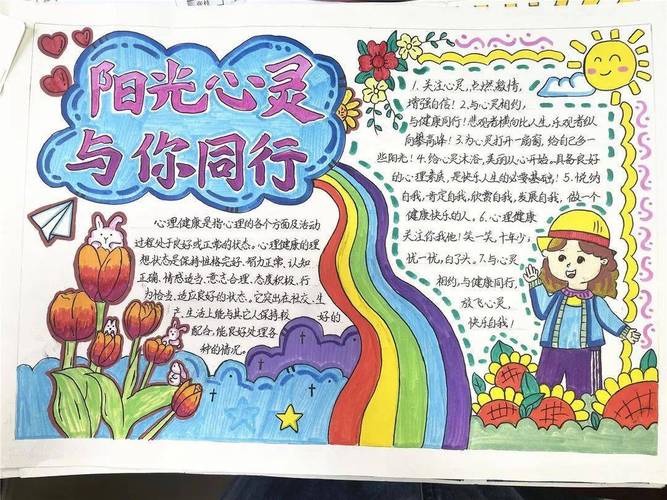 阳光心灵
与你同行
心理健康是指心理的各个方面及活动
过程处于良好或正常的状态。心理健康的理
想状态是保持性格完好、智力正常、认知
正确、情感适当、意志合理、态度积极、行
为恰当、适应良好的状态。它突出在社交、生
产、生活上能与其它人保持较 好的
配合,能良好处理各
种的情况。
1.关注心灵,点燃激情,
增强自信!2.与心灵相约,
与健康同行!悲观者横向比人生,乐观者纵
向攀高峰!3.为心灵打开一扇窗,给自己多一
些阳光!4.给心灵沐浴,美丽从心开始,具备良好
的心理素质,是快乐人生的必要基础!5.悦纳
自我,肯定自我,欣赏自我,发展自我,做一个
健康快乐的人。6.心理健康
关注你我他!笑一笑,十年少,
忧一忧,白了头。7.与心灵
相约,与健康同行,
放飞心灵,
快乐自我!